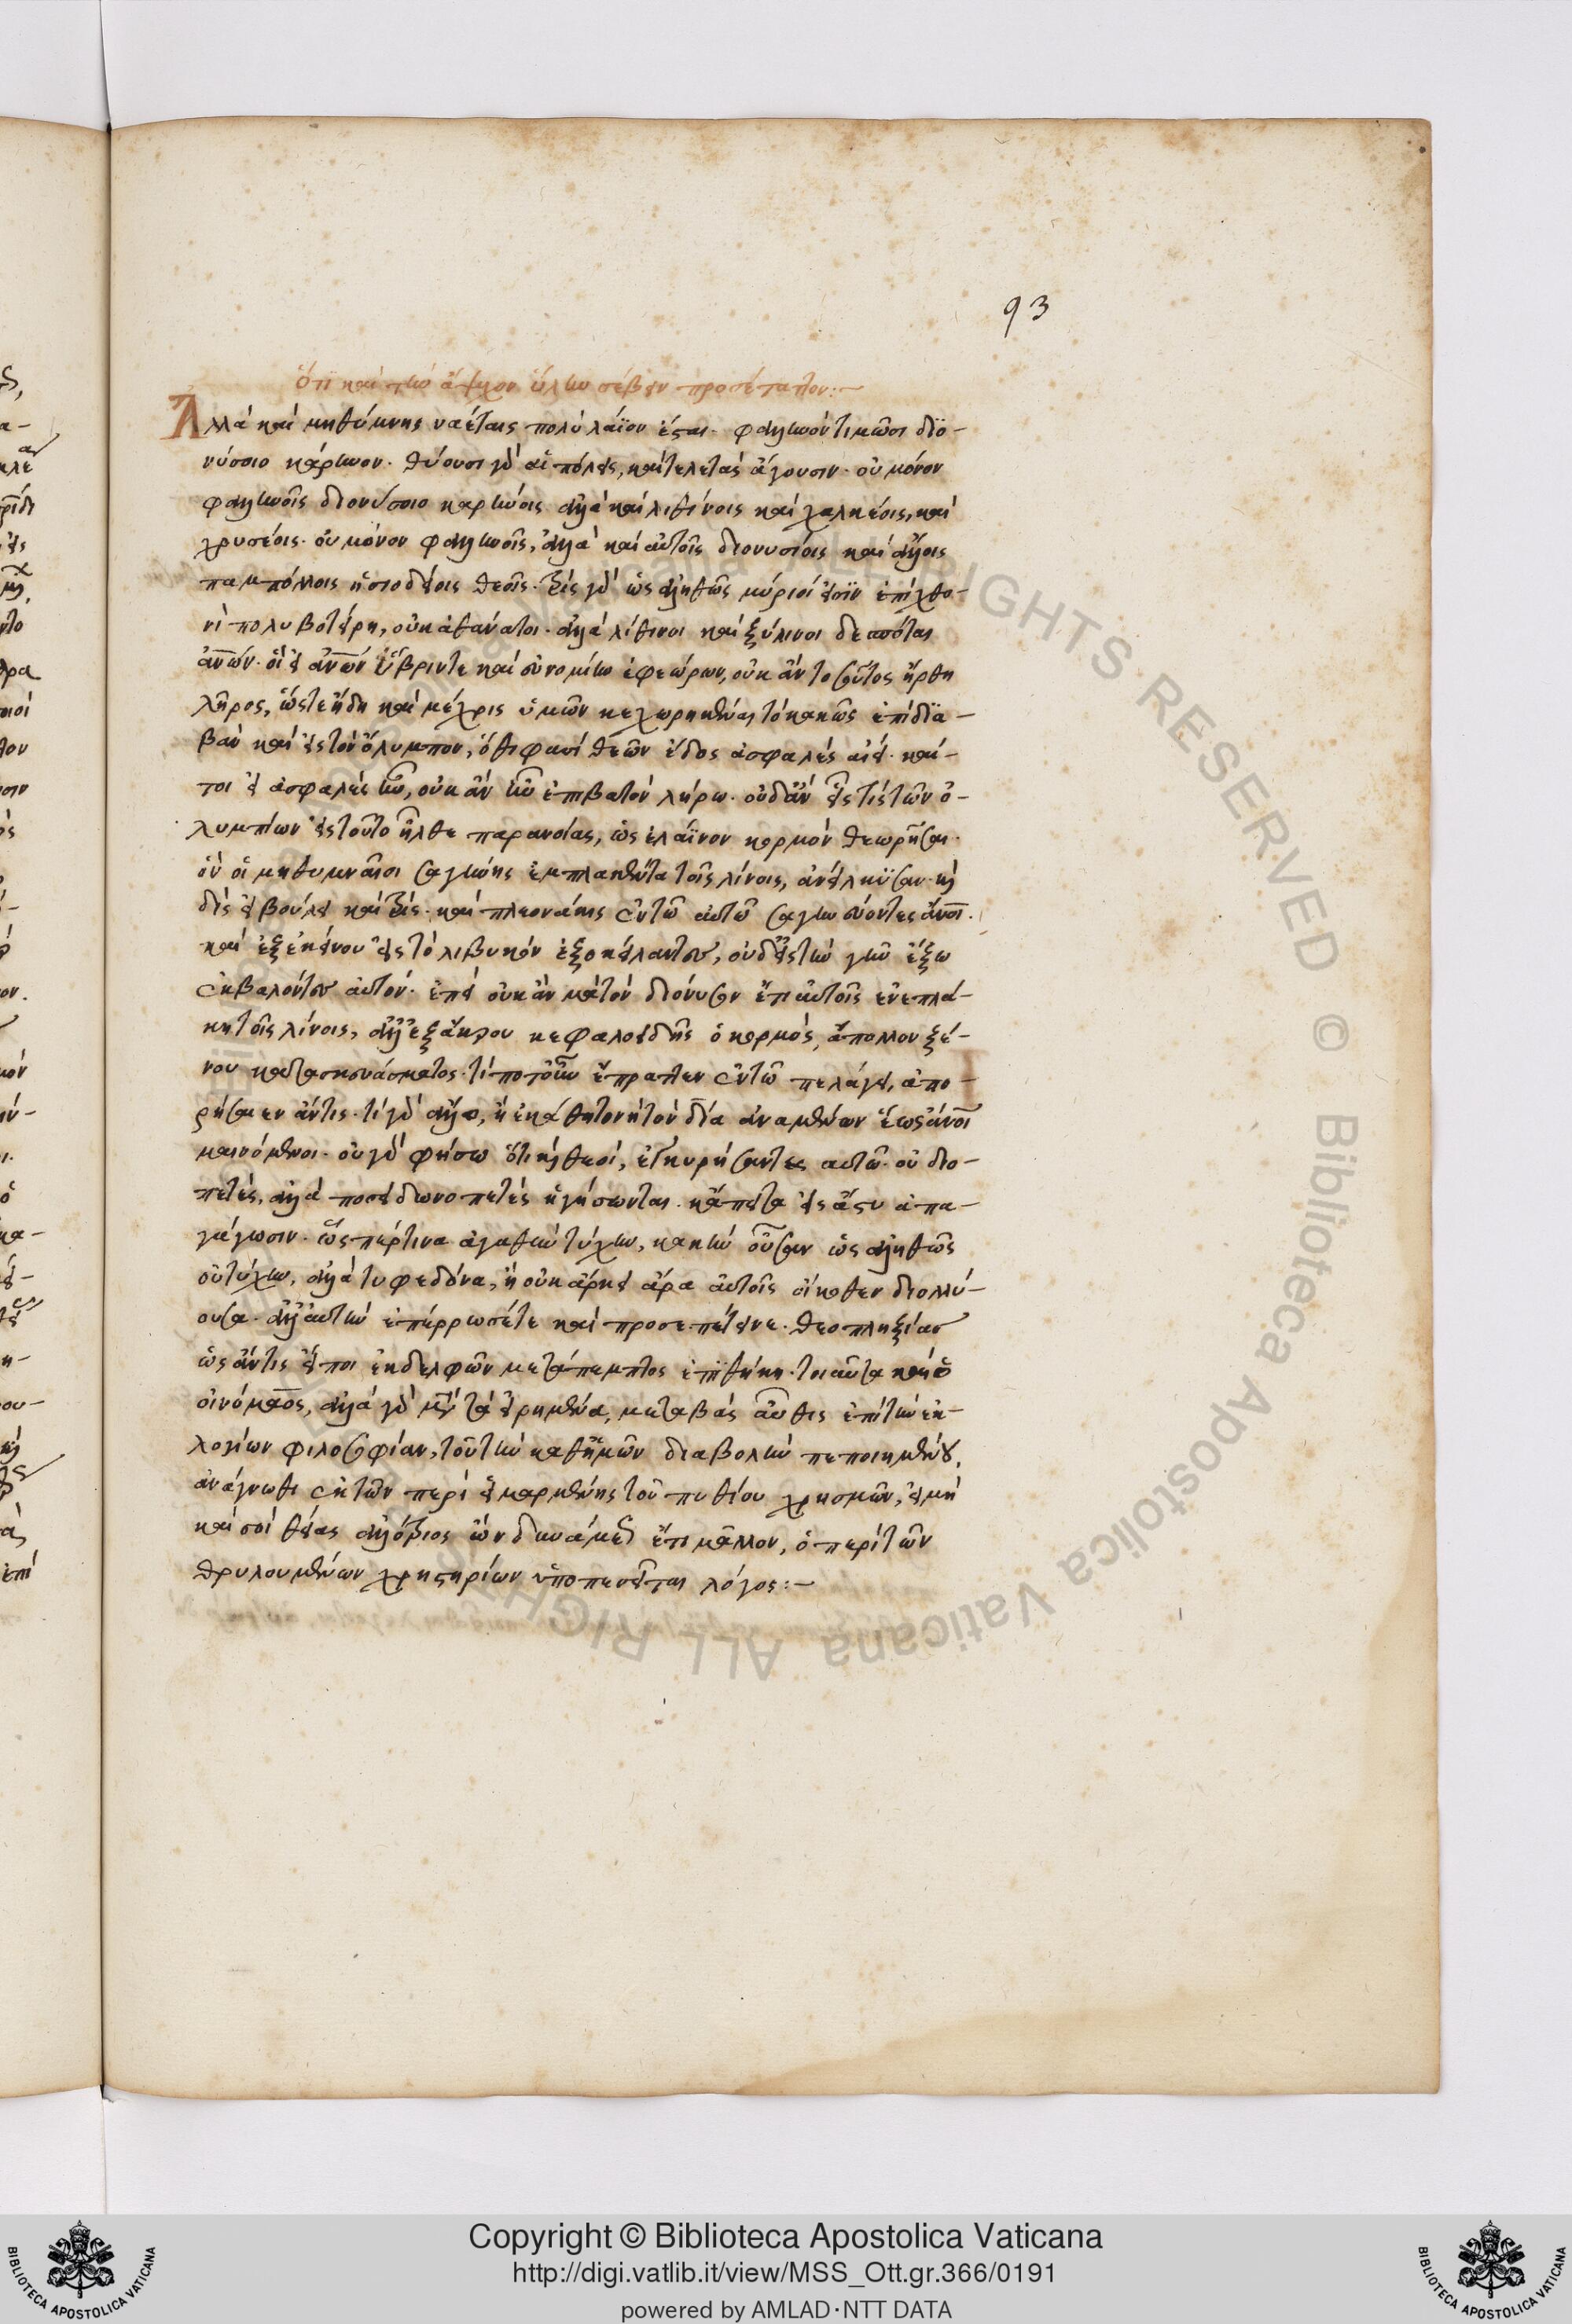 ὅτι καὶ τὴν ἄψυχον ὕλην σέβειν προσέταττον:—
Ἀλλὰ καὶ μηθύμνης ναέταις πολὺ λώϊον ἔσται. φαλληνὸν τιμῶσι διο-
νύσοιο κάρηνον. θύουσι γὰρ αἱ πόλεις, καὶ τελετὰς ἄγουσιν. οὐ μόνον
φαλληνοῖς διονύσοιο καρήνοις ἀλλὰ καὶ λιθίνοις καὶ χαλκέοις, καὶ
χρυσέοις. οὐ μόνον φαλληνοῖς, ἀλλὰ καὶ αὐτοῖς διονυσίοις καὶ ἄλλοις
παμπόλλοις ἡσιοδείοις θεοῖς. τρὶς γὰρ ὡς ἀληθῶς μύριοί εἰσϊν ἐπὶ χθο-
νὶ πολυβοτείρῃ, οὐκ ἀθάνατοι. ἀλλὰ λίθινοι καὶ ξύλινοι δεσπόται
ἀν̅ων. οἳ εἰ ἀν̅ων ὕβριν τε καὶ εὐνομίην ἐφεώρων, οὐκ ἂν τοσοῦτος ἤρθη
λῆρος, ὥστε ἤδη καὶ μέχρις ὑμῶν κεχωρηκέναι τὸ κακῶς ἐπιδϊα-
βὰν καὶ εἰς τὸν ὄλυμπον, ὅθι φασὶ θεῶν ἕδος ἀσφαλὲς αἰεί. καί-
τοι εἰ ἀσφαλὲς ἦν, οὐκ ἂν ἦν ἐπιβατὸν λήρω. οὐδ' ἂν εἷς τις τῶν ὀ-
λυμπίων εἰς τοῦτο ἦλθε παρανοίας, ὡς ἐλάϊνον κορμὸν θεωρῆσαι.
ὃν οἱ μηθυμναῖοι σαγήνης ἐμπλακέντα τοῖς λίνοις, ἀνείλκϋσαν. καὶ
δὶς εἰ βούλει καὶ τρίς. καὶ πλεονάκις ἐν τῶ αὐτῶ σαγηνεύοντες ἄνοι.
καὶ ἐξ ἐκείνου εἰς τὸ λιβυκὸν ἐξοκείλαντες, οὐδ' εἰς τὴν γῆν ἔξω
ἐκβαλόντες αὐτόν. ἐπεὶ οὐκ ἂν μὰ τὸν διόνυσον ἔτι αὐτοῖς ἐνεπλά-
κη τοῖς λίνοις, ἀλλ' ἐξ ἄκρου κεφαλοειδὴς ὁ κορμός, ἄπολλον ξέ-
νου κατασκευάσματος. τί ποτ' οὖν ἔπραττεν ἐν τῶ πελάγει, ἀπο-
ρήσαιεν ἄν τις. τί γὰρ ἄλλο, ἢ ἐκάθητο νὴ τὸν δία ἀναμένων ἕως ἄνοι
μαινόμενοι. οὐ γὰρ φήσω ὅτι καὶ θεοί, ἐγκυρήσαντες αὐτῶ. οὐ διο-
πετές, ἀλλὰ ποσειδωνοπετὲς ἡγήσωνται. κἄπειτα εἰς ἄστυ ἀπα-
γάγωσιν. ὥσπερ τινα ἀγαθὴν τύχην, κακὴν οὖσαν ὡς ἀληθῶς
οὐ τύχην, ἀλλὰ τυφεδόνα, ἢ οὐκ ἀρκεῖ ἄρα αὐτοῖς οἴκοθεν διολλύ-
ουσα. ἀλλ' αὐτὴν ἐπέρρωσέ τε καὶ προσεπέτεινε. θεοπληξίας
ὡς ἄν τις εἴποι ἐκ δελφῶν μετάπεμπτος ἐπϊθήκη. τοιαῦτα καὶ ὁ
οἰνόμαος, ἀλλὰ γὰρ μετὰ τὰ εἰρημένα, μεταβὰς αὖθις ἐπὶ τὴν ἐκ
λογίων φιλοσοφίαν, τοῦ τὴν καθ' ἡμῶν διαβολὴν πεποιημένου,
ἀνάγνωθι ἐκ τῶν περὶ εἱμαρμένης τοῦ πυθίου χρησμῶν, εἰ μὴ
καὶ σοὶ θείας ἀλλότριος ὢν δυνάμεως ἔτι μᾶλλον, ὁ περὶ τῶν
θρυλουμένων χρηστηρίων ὑποπεσεῖται λόγος:—
93
Copyright © Biblioteca Apostolica Vaticana
http://digi.vatlib.it/view/MSS_Ott.gr.366/0191
powered by AMLAD·NTT DATA
BIBLIOTECA APOSTOLICA VATICANA
BIBLIOTECA APOSTOLICA VATICANA
ALL RIGHTS RESERVED © Biblioteca Apostolica Vaticana ALL RIGHTS